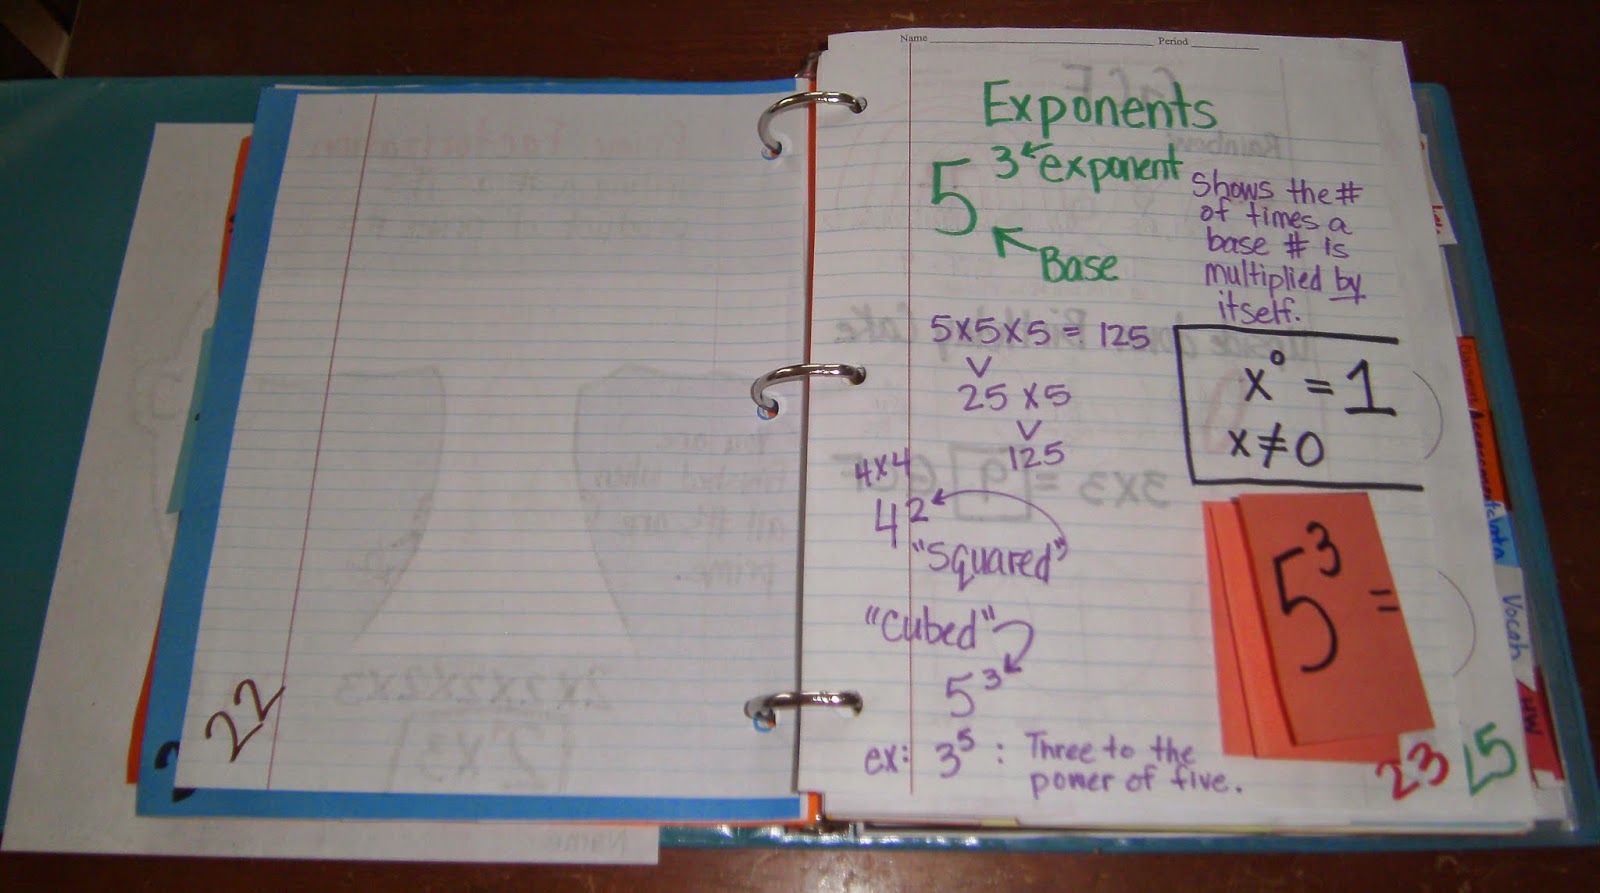 Name
Period
Exponents
5³ exponent
Base
Shows the #
of times a
base # is
multiplied by
itself.
5x5x5 = 125
25 x5
125
x⁰ = 1
x≠0
4x4
4²
"Squared"
"Cubed"
5³
ex: 3⁵ : Three to the
power of five.
5³ =
22
23
25
Vocab
HW